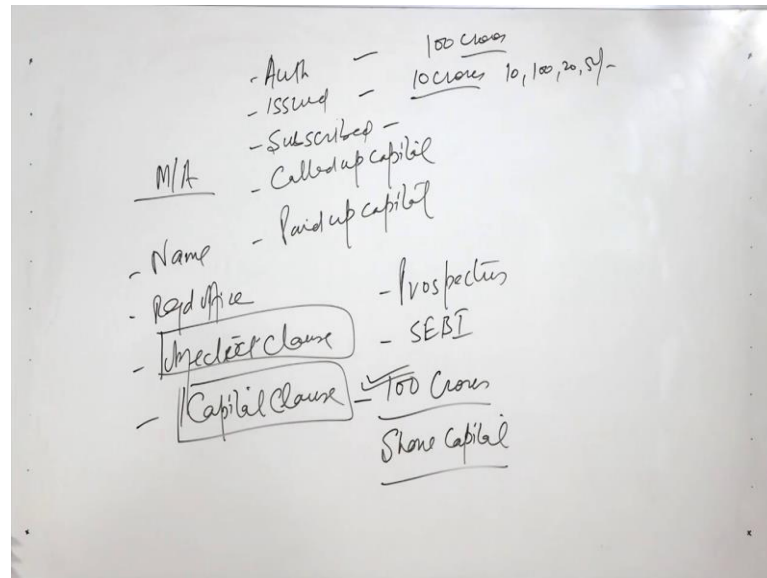 - Auth - 100 Crores
- Issued - 10 Crores 10, 100, 20, 5/-
- Subscribed -
- Called up capital
- Paid up capital
M/A
- Name
- Regd office
- Object Clause
- Capital Clause - 100 Crores
- Prospectus
- SEBI
Share Capital